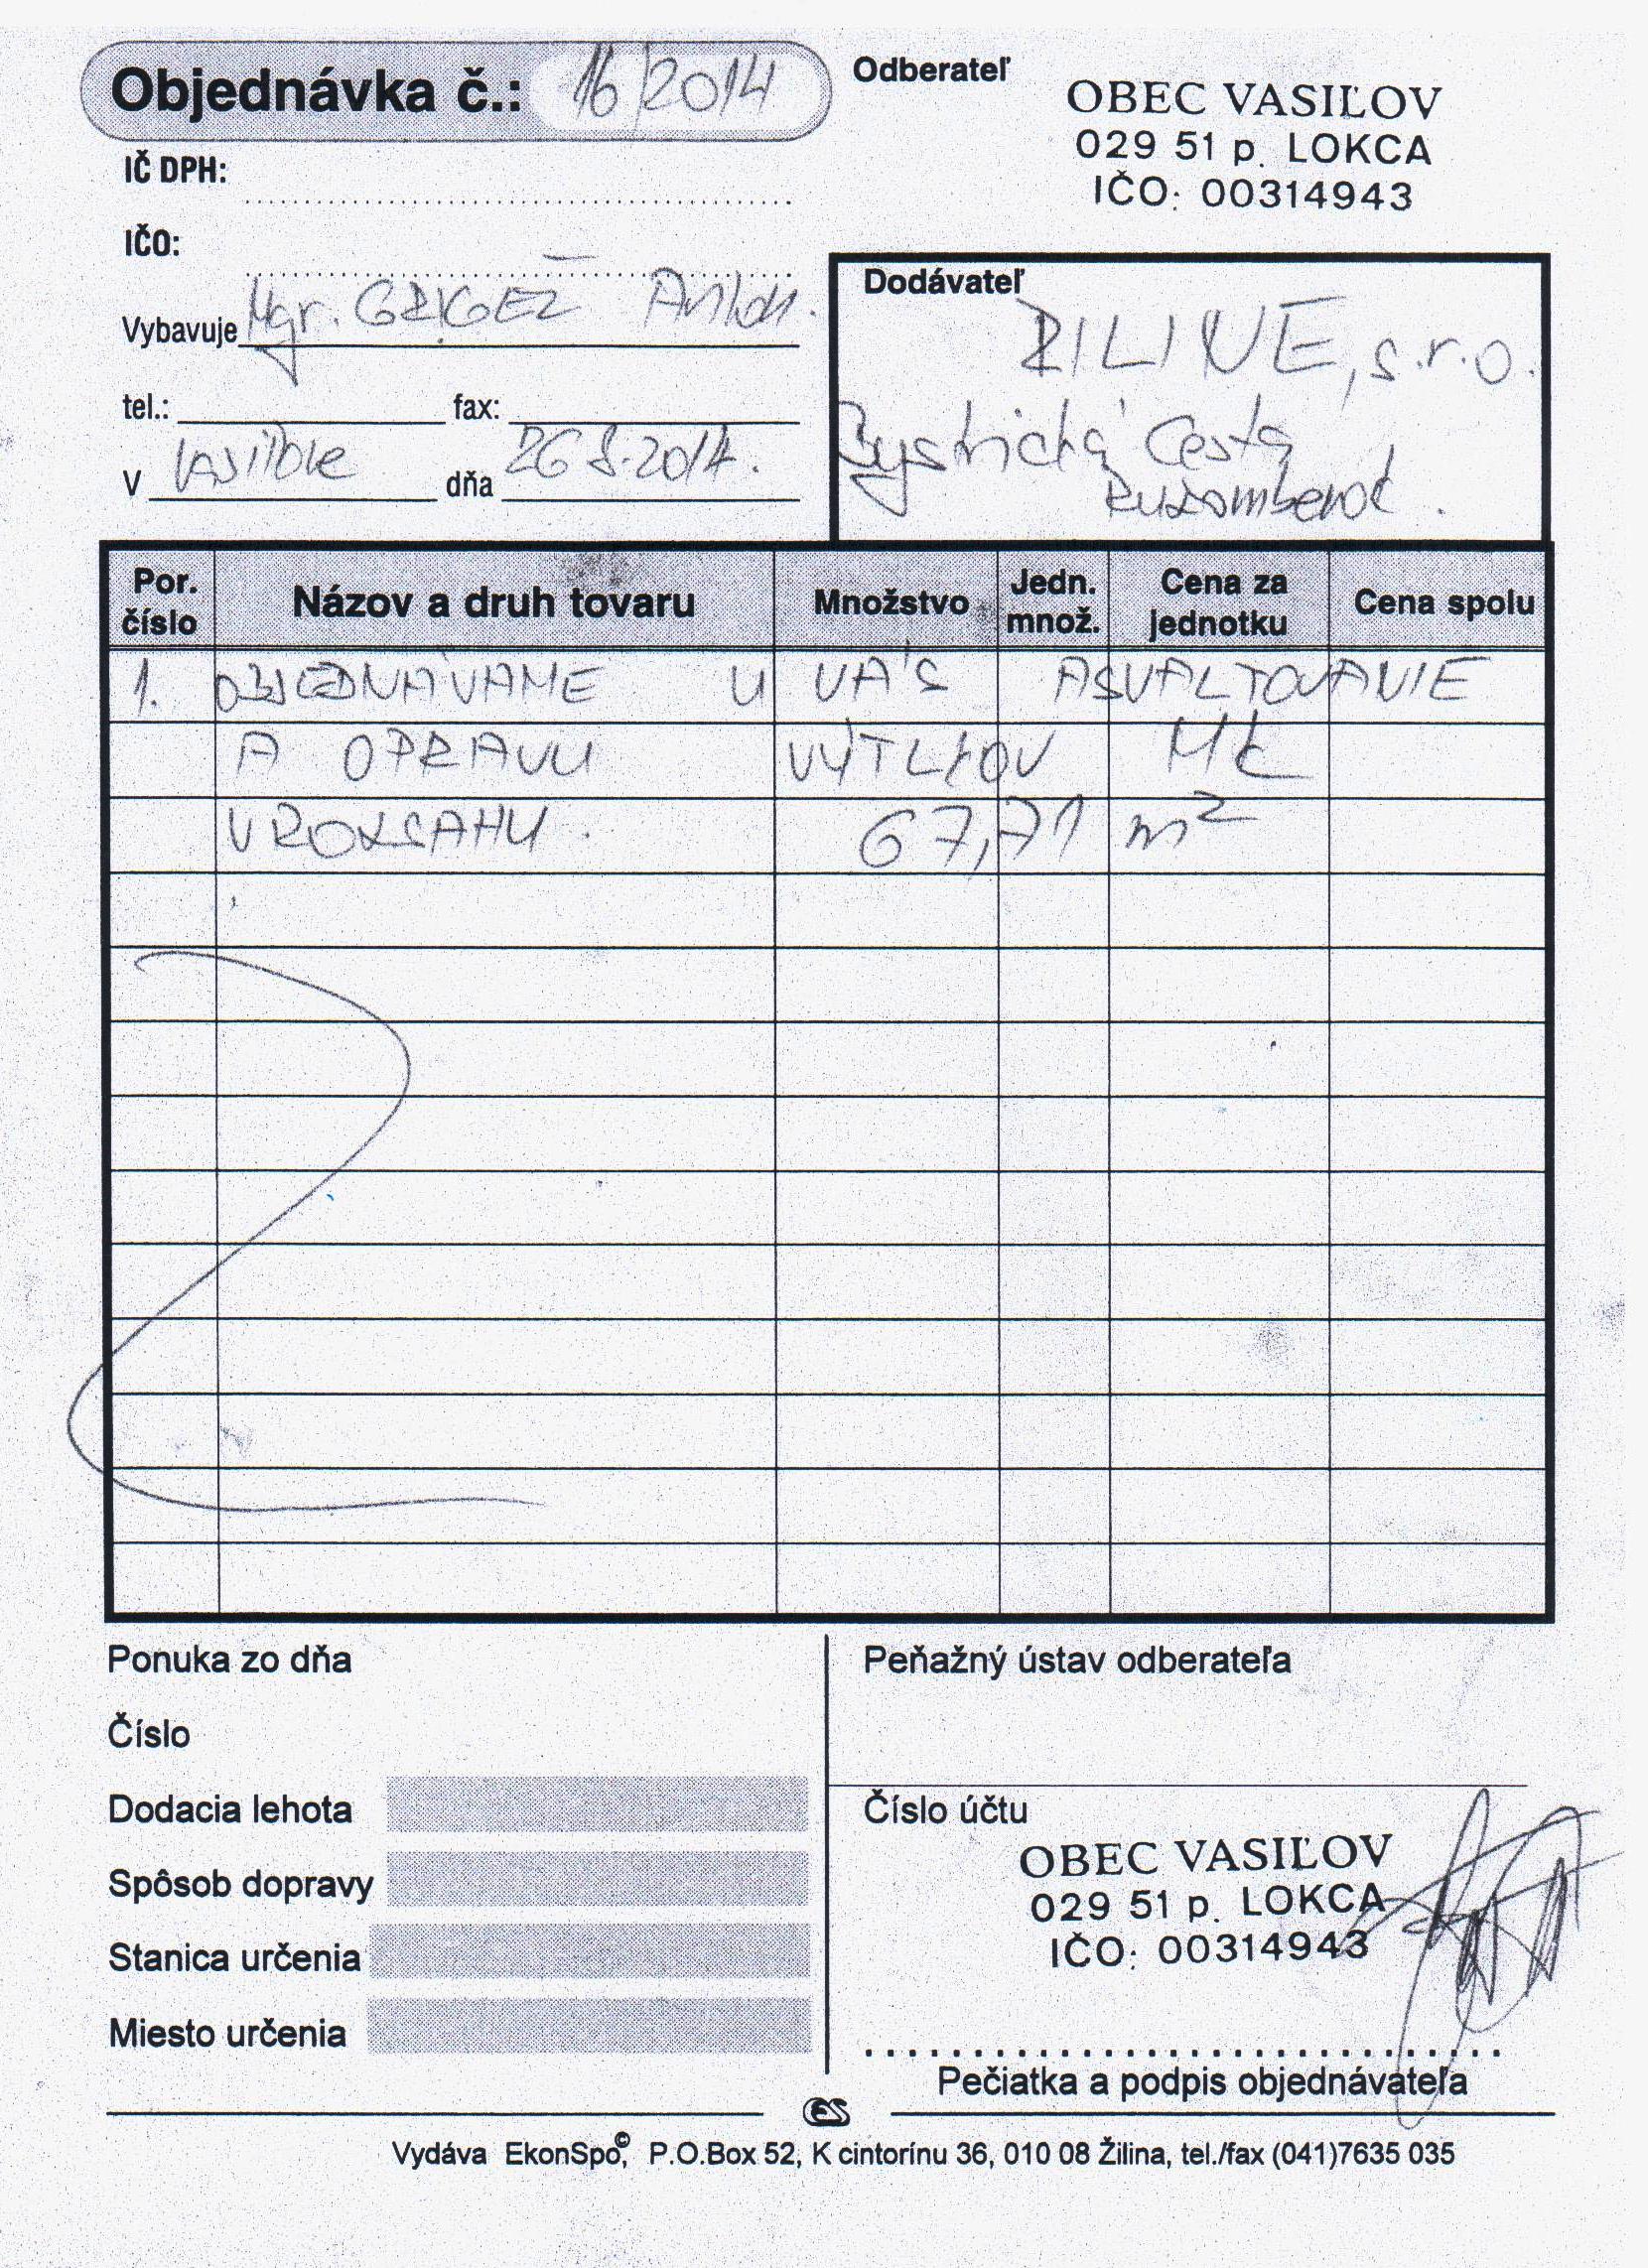 Objednávka č.: 16/2014
Odberateľ
OBEC VASIĽOV
029 51 p. LOKCA
IČO: 00314943
IČ DPH:
IČO:
Vybavuje Mgr. GRIGEĽ Anton.
tel.: fax:
V Vasiľove dňa 26.8.2014.
Dodávateľ
RILINE, s.r.o.
Bystrická Cesta
Ružomberok.
Por. číslo Názov a druh tovaru Množstvo Jedn. množ. Cena za jednotku Cena spolu
1. OBJEDNÁVAME U VÁS ASVALTOVANIE
A OPRAVU VÝTLKOV MK
V ROZSAHU. 67,71 m²
Ponuka zo dňa
Číslo
Dodacia lehota
Spôsob dopravy
Stanica určenia
Miesto určenia
Peňažný ústav odberateľa
Číslo účtu
OBEC VASIĽOV
029 51 p. LOKCA
IČO: 00314943
Pečiatka a podpis objednávateľa
ES
Vydáva EkonSpo©, P.O.Box 52, K cintorínu 36, 010 08 Žilina, tel./fax (041)7635 035